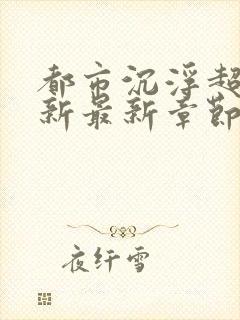 都市沉浮超
新最新章节
夜纤雪